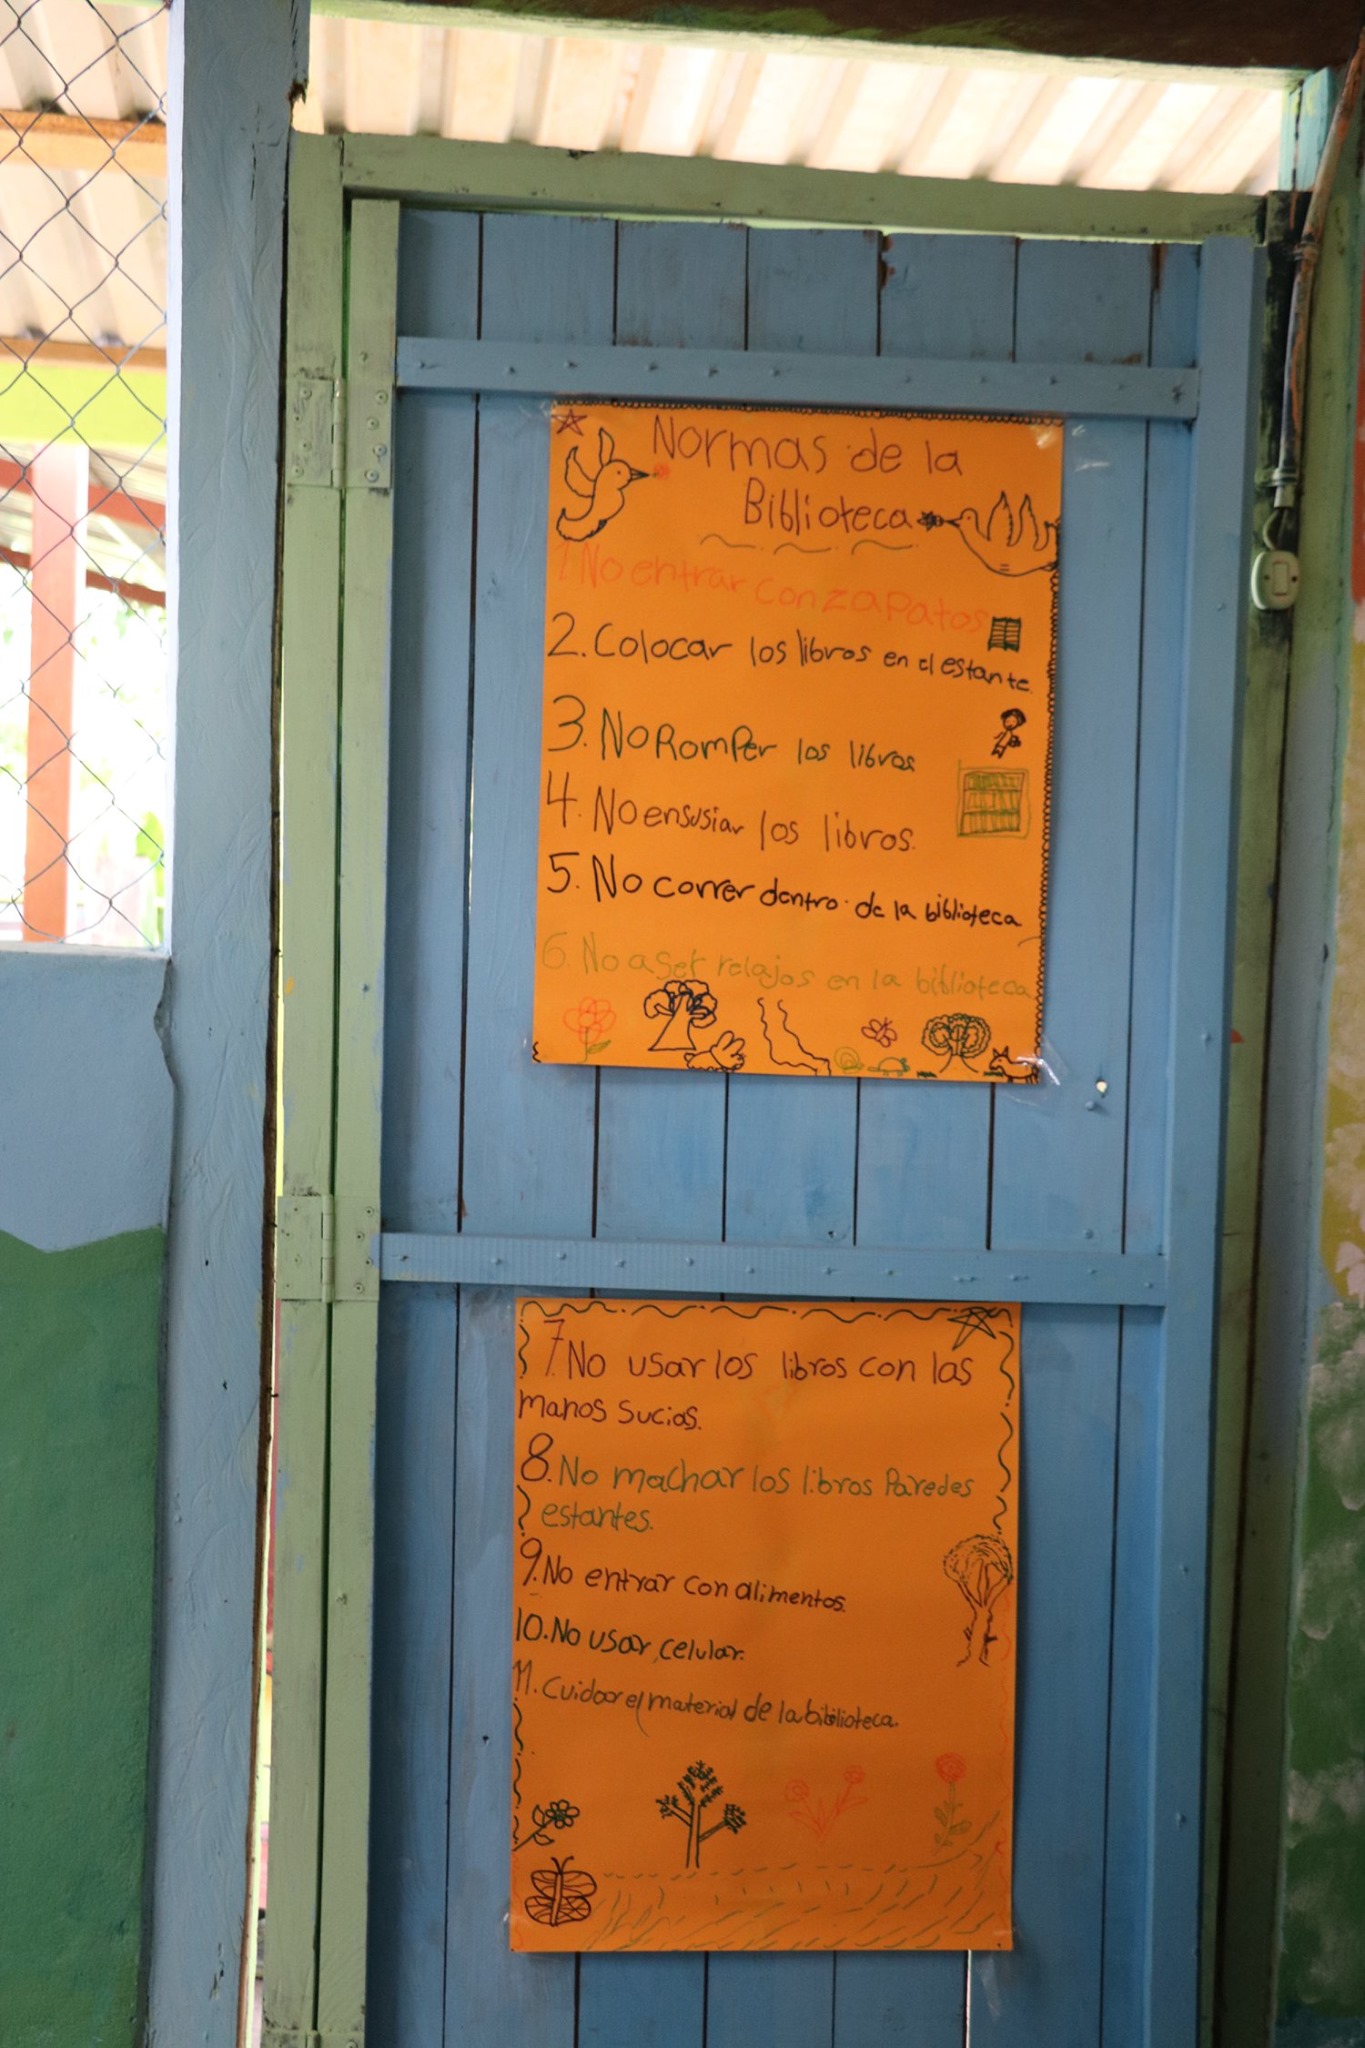 Normas de la
Biblioteca
1 No entrar con zapatos
2. Colocar los libros en el estante.
3. No Romper los libros
4. No ensusiar los libros.
5. No correr dentro de la biblioteca
6. No aser relajos en la biblioteca
7. No usar los libros con las
manos sucias.
8. No machar los libros Paredes
estantes.
9. No entrar con alimentos.
10. No usar celular.
11. Cuidar el material de la bibilioteca.